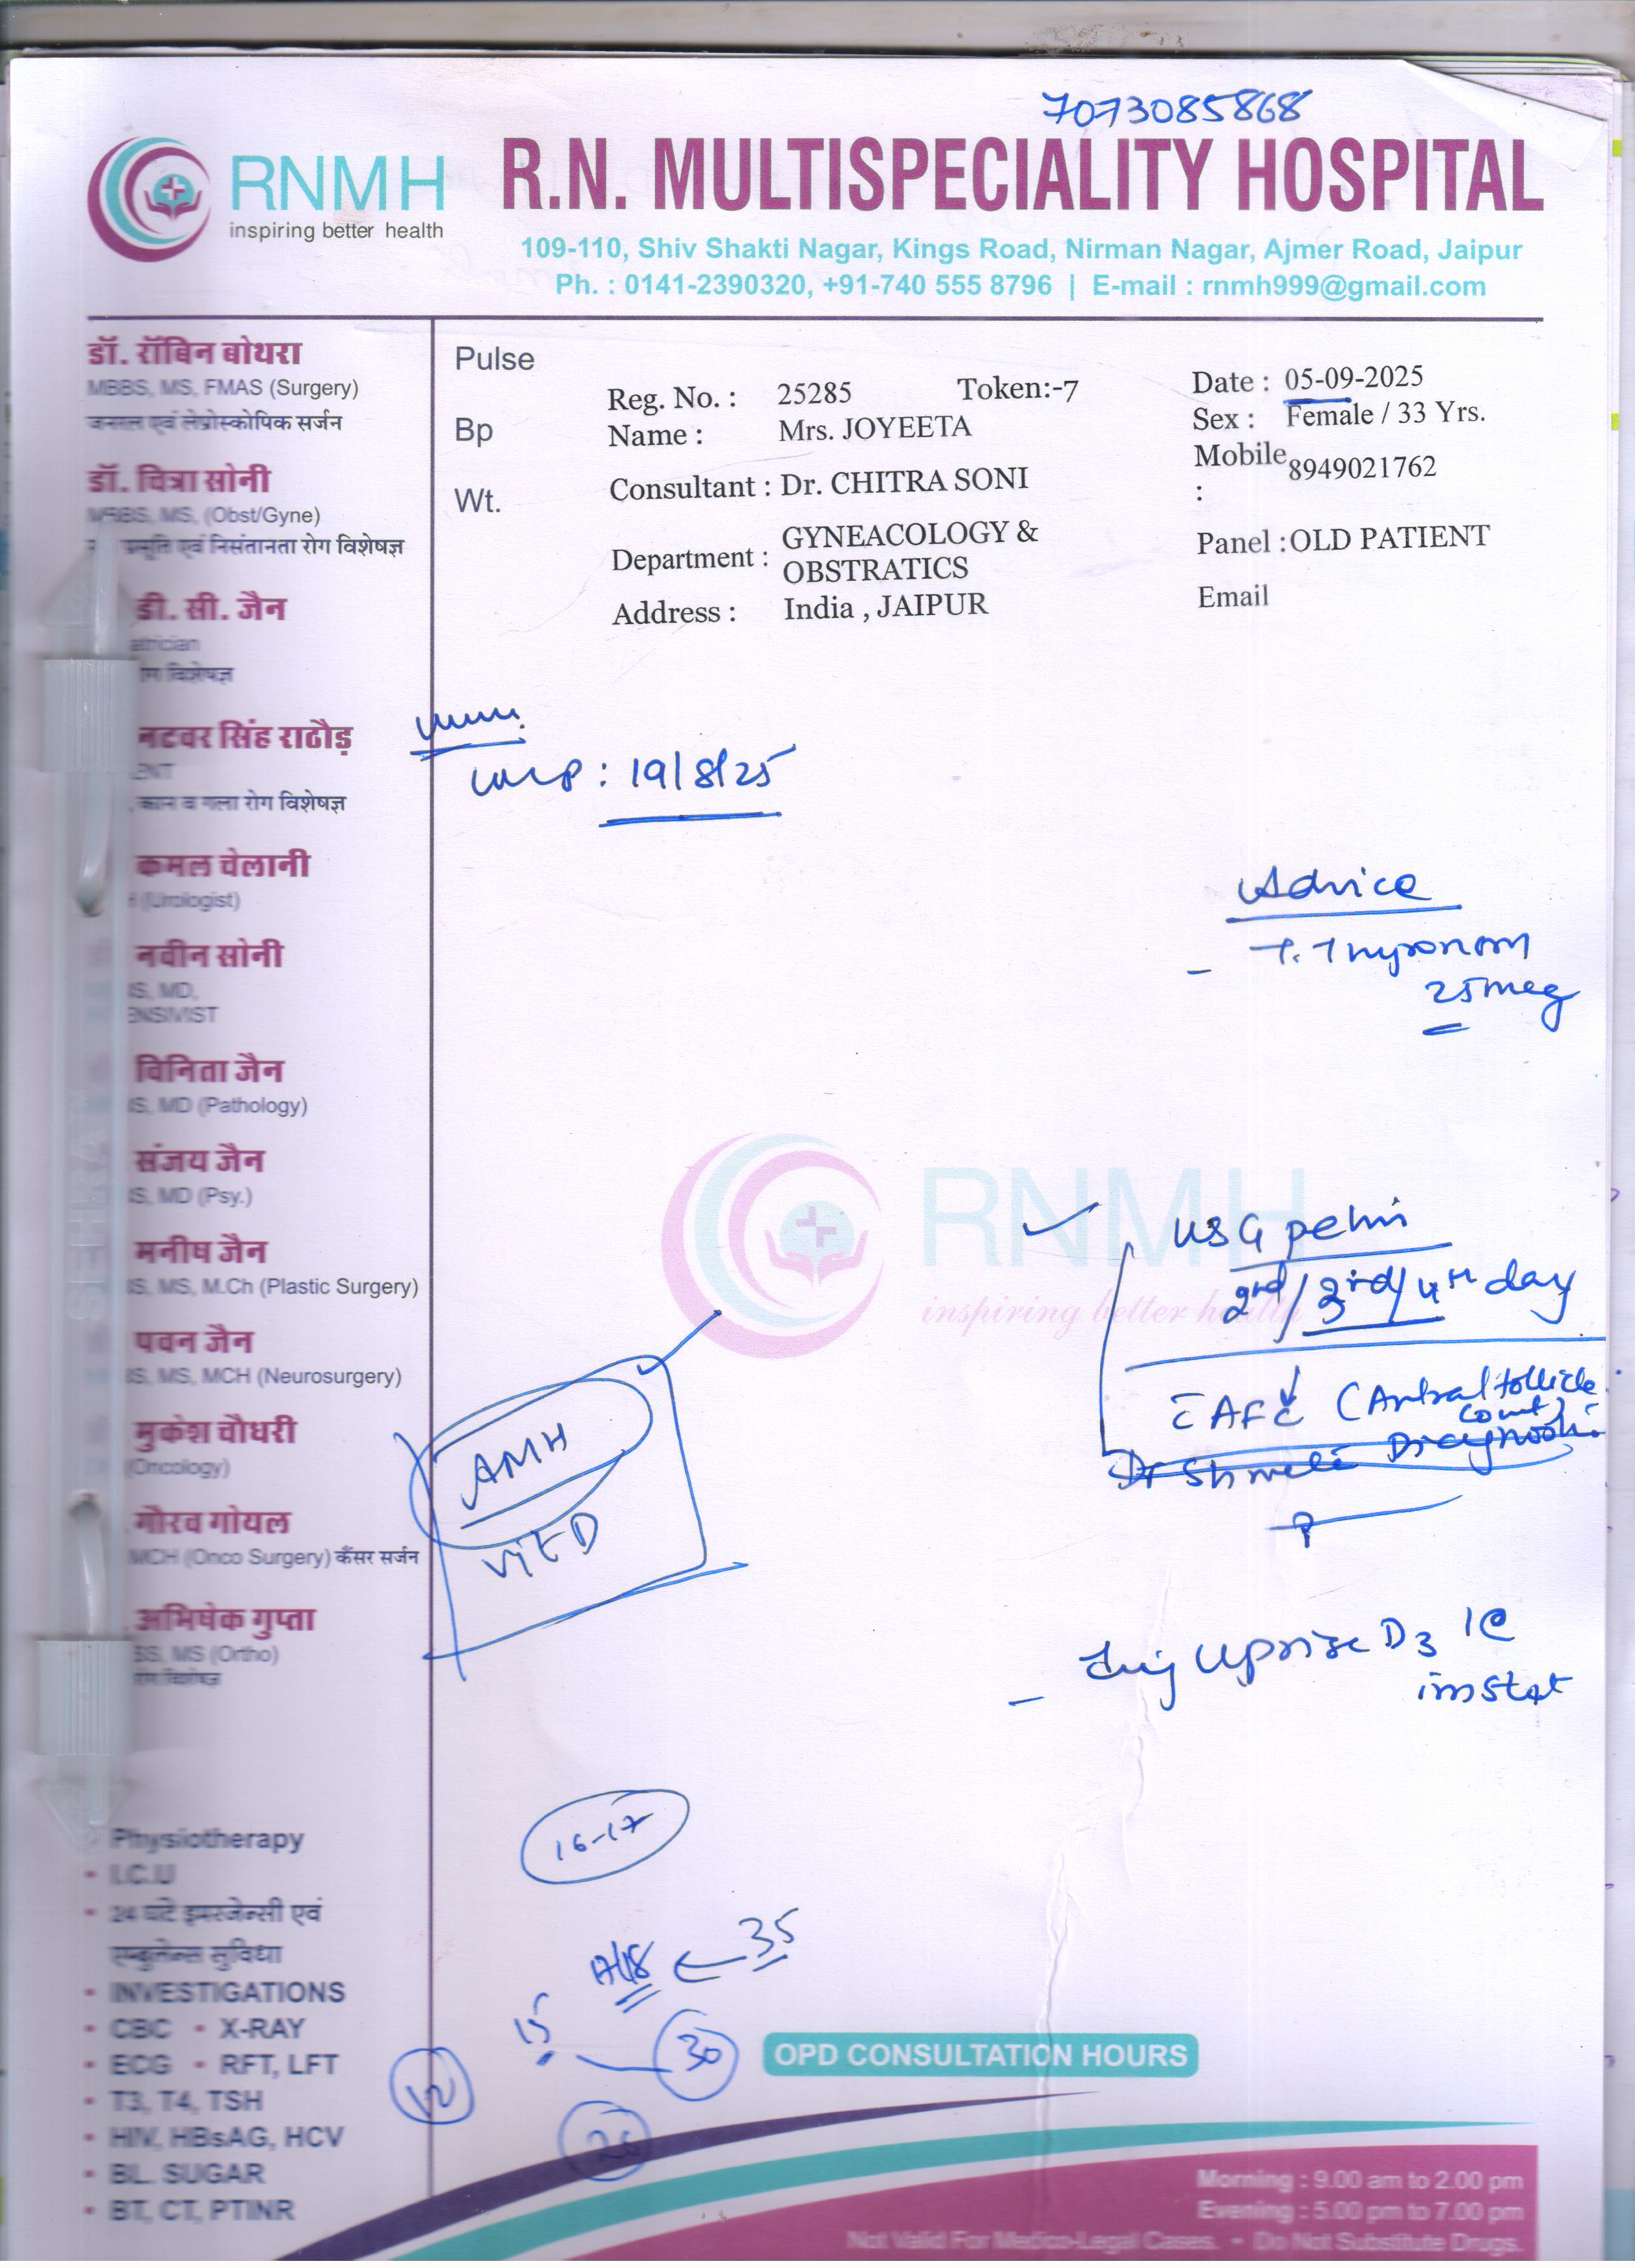 7073085868
RNMH
inspiring better health
R.N. MULTISPECIALITY HOSPITAL
109-110, Shiv Shakti Nagar, Kings Road, Nirman Nagar, Ajmer Road, Jaipur
Ph. : 0141-2390320, +91-740 555 8796 | E-mail : rnmh999@gmail.com
डॉ. रॉबिन बोथरा
MBBS, MS, FMAS (Surgery)
जनरल एवं लेप्रोस्कोपिक सर्जन
डॉ. चित्रा सोनी
MBBS, MS, (Obst/Gyne)
प्रसूति एवं निसंतानता रोग विशेषज्ञ
डी. सी. जैन
रोग विशेषज्ञ
नटवर सिंह राठौड़
ENT
, कान व गला रोग विशेषज्ञ
कमल चेलानी
(Urologist)
नवीन सोनी
BS, MD,
ENSIVIST
विनिता जैन
BS, MD (Pathology)
संजय जैन
BS, MD (Psy.)
मनीष जैन
BS, MS, M.Ch (Plastic Surgery)
पवन जैन
BS, MS, MCH (Neurosurgery)
मुकेश चौधरी
(Oncology)
गौरव गोयल
MCH (Onco Surgery) कैंसर सर्जन
अभिषेक गुप्ता
BS, MS (Ortho)
रोग विशेषज्ञ
Physiotherapy
• I.C.U
• 24 घंटे इमरजेन्सी एवं
एम्बुलेन्स सुविधा
• INVESTIGATIONS
• CBC • X-RAY
• ECG • RFT, LFT
• T3, T4, TSH
• HIV, HBsAG, HCV
• BL. SUGAR
• BT, CT, PTINR
Pulse
Bp
Wt.
Reg. No. : 25285 Token:-7
Name : Mrs. JOYEETA
Consultant : Dr. CHITRA SONI
Department : GYNEACOLOGY &
OBSTRATICS
Address : India , JAIPUR
Date : 05-09-2025
Sex : Female / 33 Yrs.
Mobile 8949021762
:
Panel :OLD PATIENT
Email
LMP : 19/8/25
Advice
- T. Thyronorm
25mcg
RNMH
inspiring better health
USG pelvis
2nd/3rd/4th day
c̄ AFC (Antral follicle
count)
Dr Diagnostic
AMH
Vit D
- Inj Uprise D3
im stat
16-17
17/18 ← 35
15 30
12
26
OPD CONSULTATION HOURS
Morning : 9.00 am to 2.00 pm
Evening : 5.00 pm to 7.00 pm
Not Valid For Medico-Legal Cases. • Do Not Substitute Drugs.